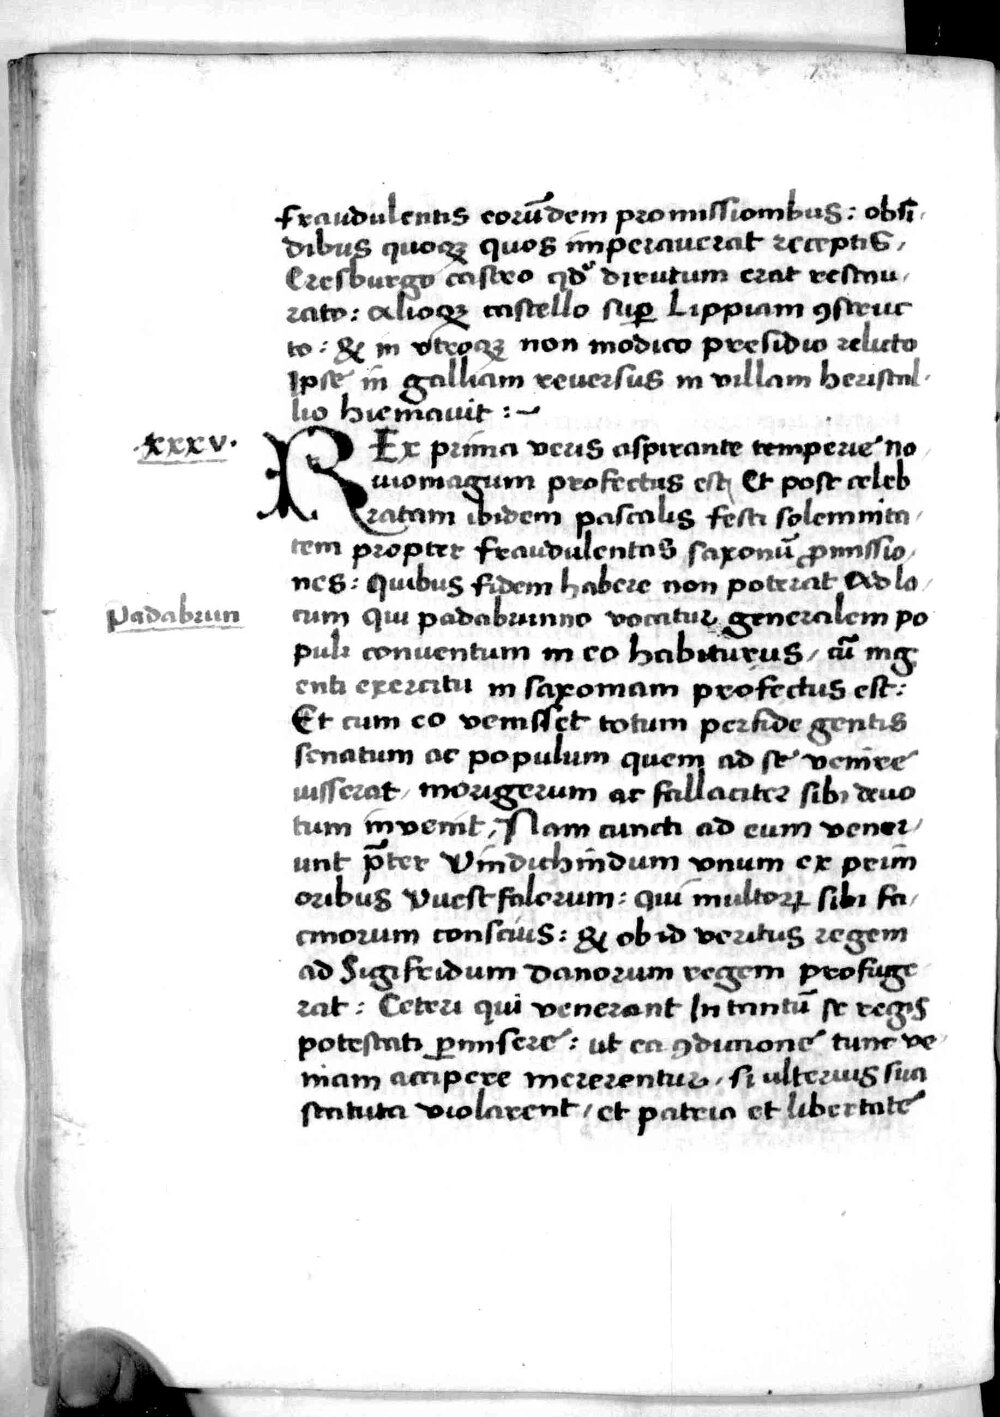 fraudulentis eorūdem promissionibus: obsi,
dibus quoqꝫ quos imperauerat receptis,
Cresburgo castro qd' dirutum erat restau,
rato: alioqꝫ castello suꝑ Lippiam ꝯstruc
to: & in vtroqꝫ non modico presidio relicto
Ipse in galliam reuersus in villam heristal,
lio hiemauit :~
.xxxv.
REx prima veris aspirante temperie no,
uiomagum profectus est; Et post celeb
ratam ibidem pascalis festi solemnita,
tem propter fraudulentas saxonū ꝓmissio,
nes: quibus fidem habere non poterat Ad lo,
Padabrun
cum qui padabrunno vocatur generalem po
puli conuentum in eo habiturus, cū ing
enti exercitu in saxoniam profectus est:
Et cum eo venisset totum perfide gentis
senatum ac populum quem ad se venire
iusserat, morigerum ac fallaciter sibi deuo
tum inuenit, Nam cuncti ad eum vener,
unt p̄ter Vindichindum vnum ex prim
oribus Vuestfalorum: qui multoꝝ sibi fa,
cinorum conscius: & ob id veritus regem
ad Sigifridum danorum regem profuge
rat: Ceteri qui venerant In tantū se regis
potestati ꝑmisere: ut ea ꝯdicione tunc ve
niam accipere mererentur, si ulterius sua
statuta violarent, et patria et libertate